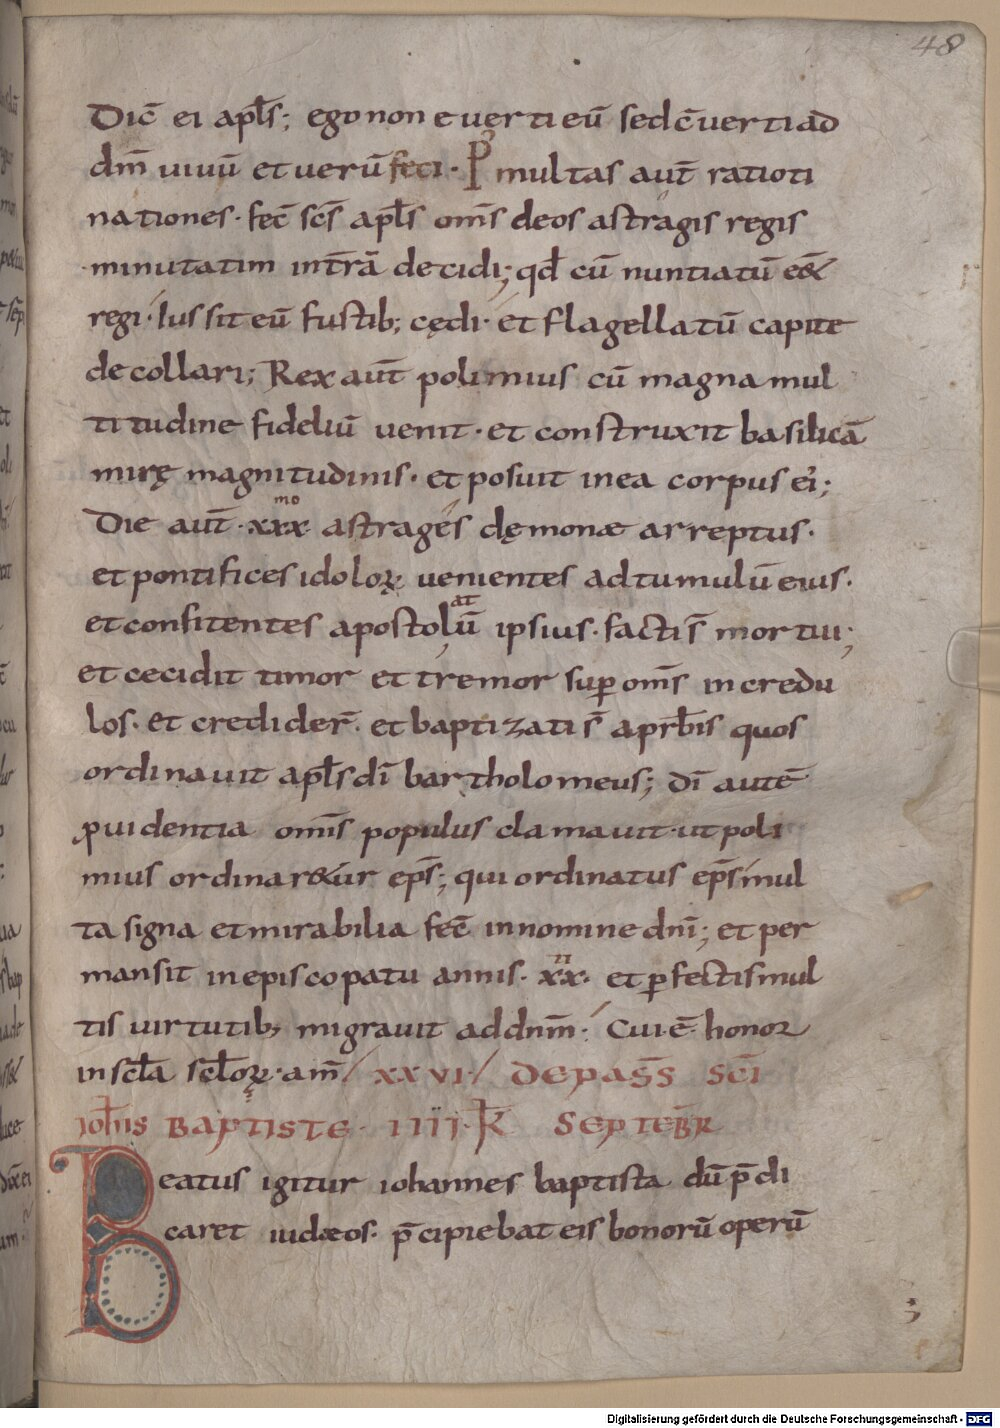 48
Dic̄ ei apl̄s; ego non euerti eū sed c̄uerti ad
dm̄ uiuū et uerū feci · P᷒ multas aut̄ ratioti
nationes · fec̄ sc̄s apl̄s om̄s deos astragis regis
minutatim intrā decidi; qd̄ cū nuntiatū eēt
regi · Iussit eū fustib; cędi · et flagellatū capite
decollari; Rex aut̄ polimius cū magna mul
titudine fideliū uenit · et construxit basilicā
mirę magnitudinis · et posuit in ea corpus ei᷒;
Die aut̄ · xxx mo astrages dęmonæ arreptus ·
et pontifices idoloꝝ uenientes ad tumulū eius ·
et confitentes apostolatū ipsius · facti s̄ mortui;
et cecidit timor et tremor sup̱ om̄s incredu
los · et credider̄ · et baptizati s̄ a prb̄is quos
ordinauit apl̄s dī bartholomeus; dī autē
ꝓuidentia om̄is populus clamauit · ut poli
mius ordinaretur ep̄s; qui ordinatus ep̄s mul
ta signa et mirabilia fec̄ in nomine dn̄i; et per
mansit in episcopatu annis · xx · et ꝑfectis mul
tis uirtutib; migrauit ad dn̄m · Cui ē honor
in scl̄a scl̄oꝝ · am̄ / xxvi / De pass̄ sc̄i
ioh̄is Baptiste · iiii · k̄ Septēbr̄
Beatus igitur iohannes baptista dū p̄di
caret iudæos · p̄cipiebat eis bonorū operū
Digitalisierung gefördert durch die Deutsche Forschungsgemeinschaft - DFG